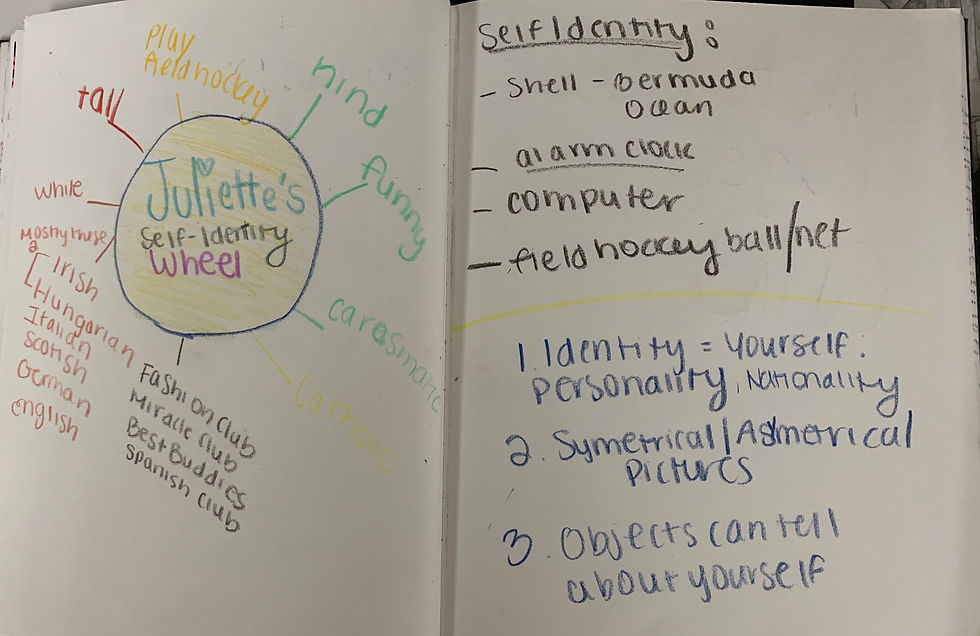 Play
field hockey
kind
tall
funny
while
Juliette's
Self-Identity
Wheel
Mostly these
2
Irish
Hungarian
Italian
Scottish
German
english
carasmatic
Catholic
Fashion Club
Miracle Club
Best Buddies
Spanish Club
Self Identity:
- Shell - Bermuda
Ocean
- alarm clock
- computer
- field hockey ball/net
1. Identity = Yourself.
Personality, Nationality
2. Symetrical/Asmetrical
Pictures
3. Objects can tell
about yourself